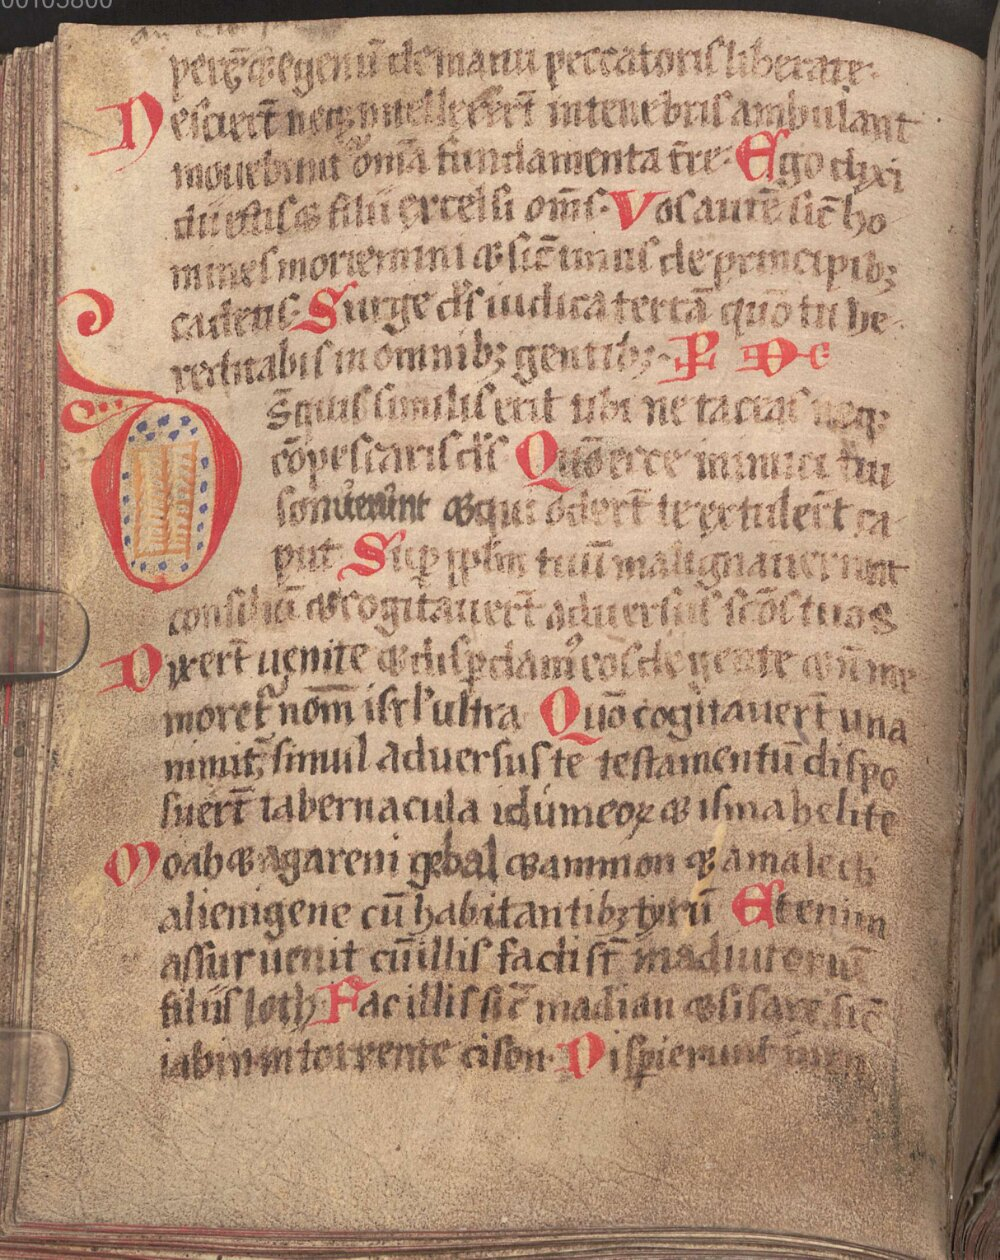 00105800
perē & egenū de manu peccatoris liberate.
Nesciert̄ neq; intellexert̄ in tenebris ambulant
movebunt᷑ om̄a fundamenta tr̄e. Ego dixi
dii estis & filii excelsi om̄s. Vos autē sic̄ ho
mines moriemini & sic̄ unus de principib;
cadetis. Surge ds̄ iudica terrā quō tu he-
reditabis in omnib; gentib;. P̄
D s̄ quis similis erit tibi ne taceas neq;
cōpescaris ds̄ Quō ecce inimici tui
sonuerunt & qui odert̄ te extulert̄ ca
put Sup̄ pplm̄ tuū malignaverunt
consiliū & cogitavert̄ adversus scōs tuos
Dixert̄ venite & disp̄damꝰ eos de gente & n̄ me
moret᷑ nom̄ isrl' ultra Quō cogitavert̄ una
nimit᷑ simul adversus te testamentū dispo
suert̄ tabernacula idumeoꝝ & ismahelite
Moab & agareni gebal & ammon & amalech
alienigene cū habitantib; tyrū Etenim
assur venit cū illis facti st̄ in adiutoriū
filiis loth Fac illis sic̄ madian & sisare sic̄
iabin in torrente cison. Disp̄ierunt in en